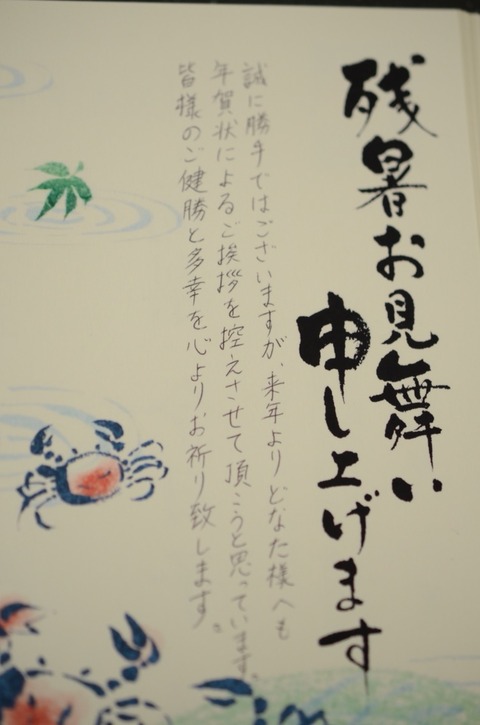 残暑お見舞い
申し上げます
誠に勝手ではございますが、来年よりどなた様へも
年賀状によるご挨拶を控えさせて頂こうと思っています。
皆様のご健勝と多幸を心よりお祈り致します。